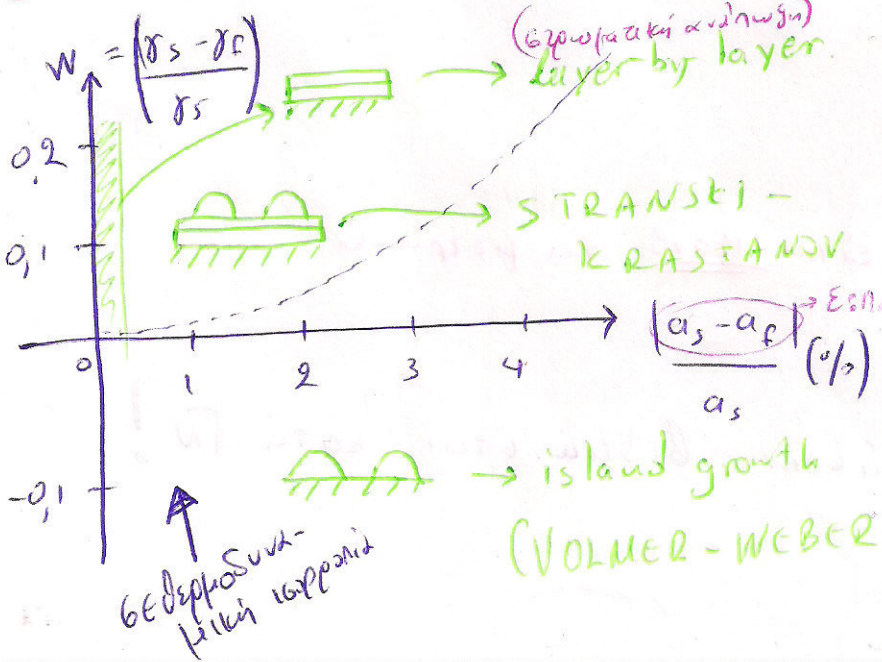 W = (γs - γf / γs)
(στρωματική ανάπτυξη)
layer by layer
0,2
0,1
STRANSKI -
KRASTANOV
0
1
2
3
4
|as - af|
as
(%)
-0,1
island growth
(VOLMER - WEBER
σε θερμοδυνα-
μική ισορροπία